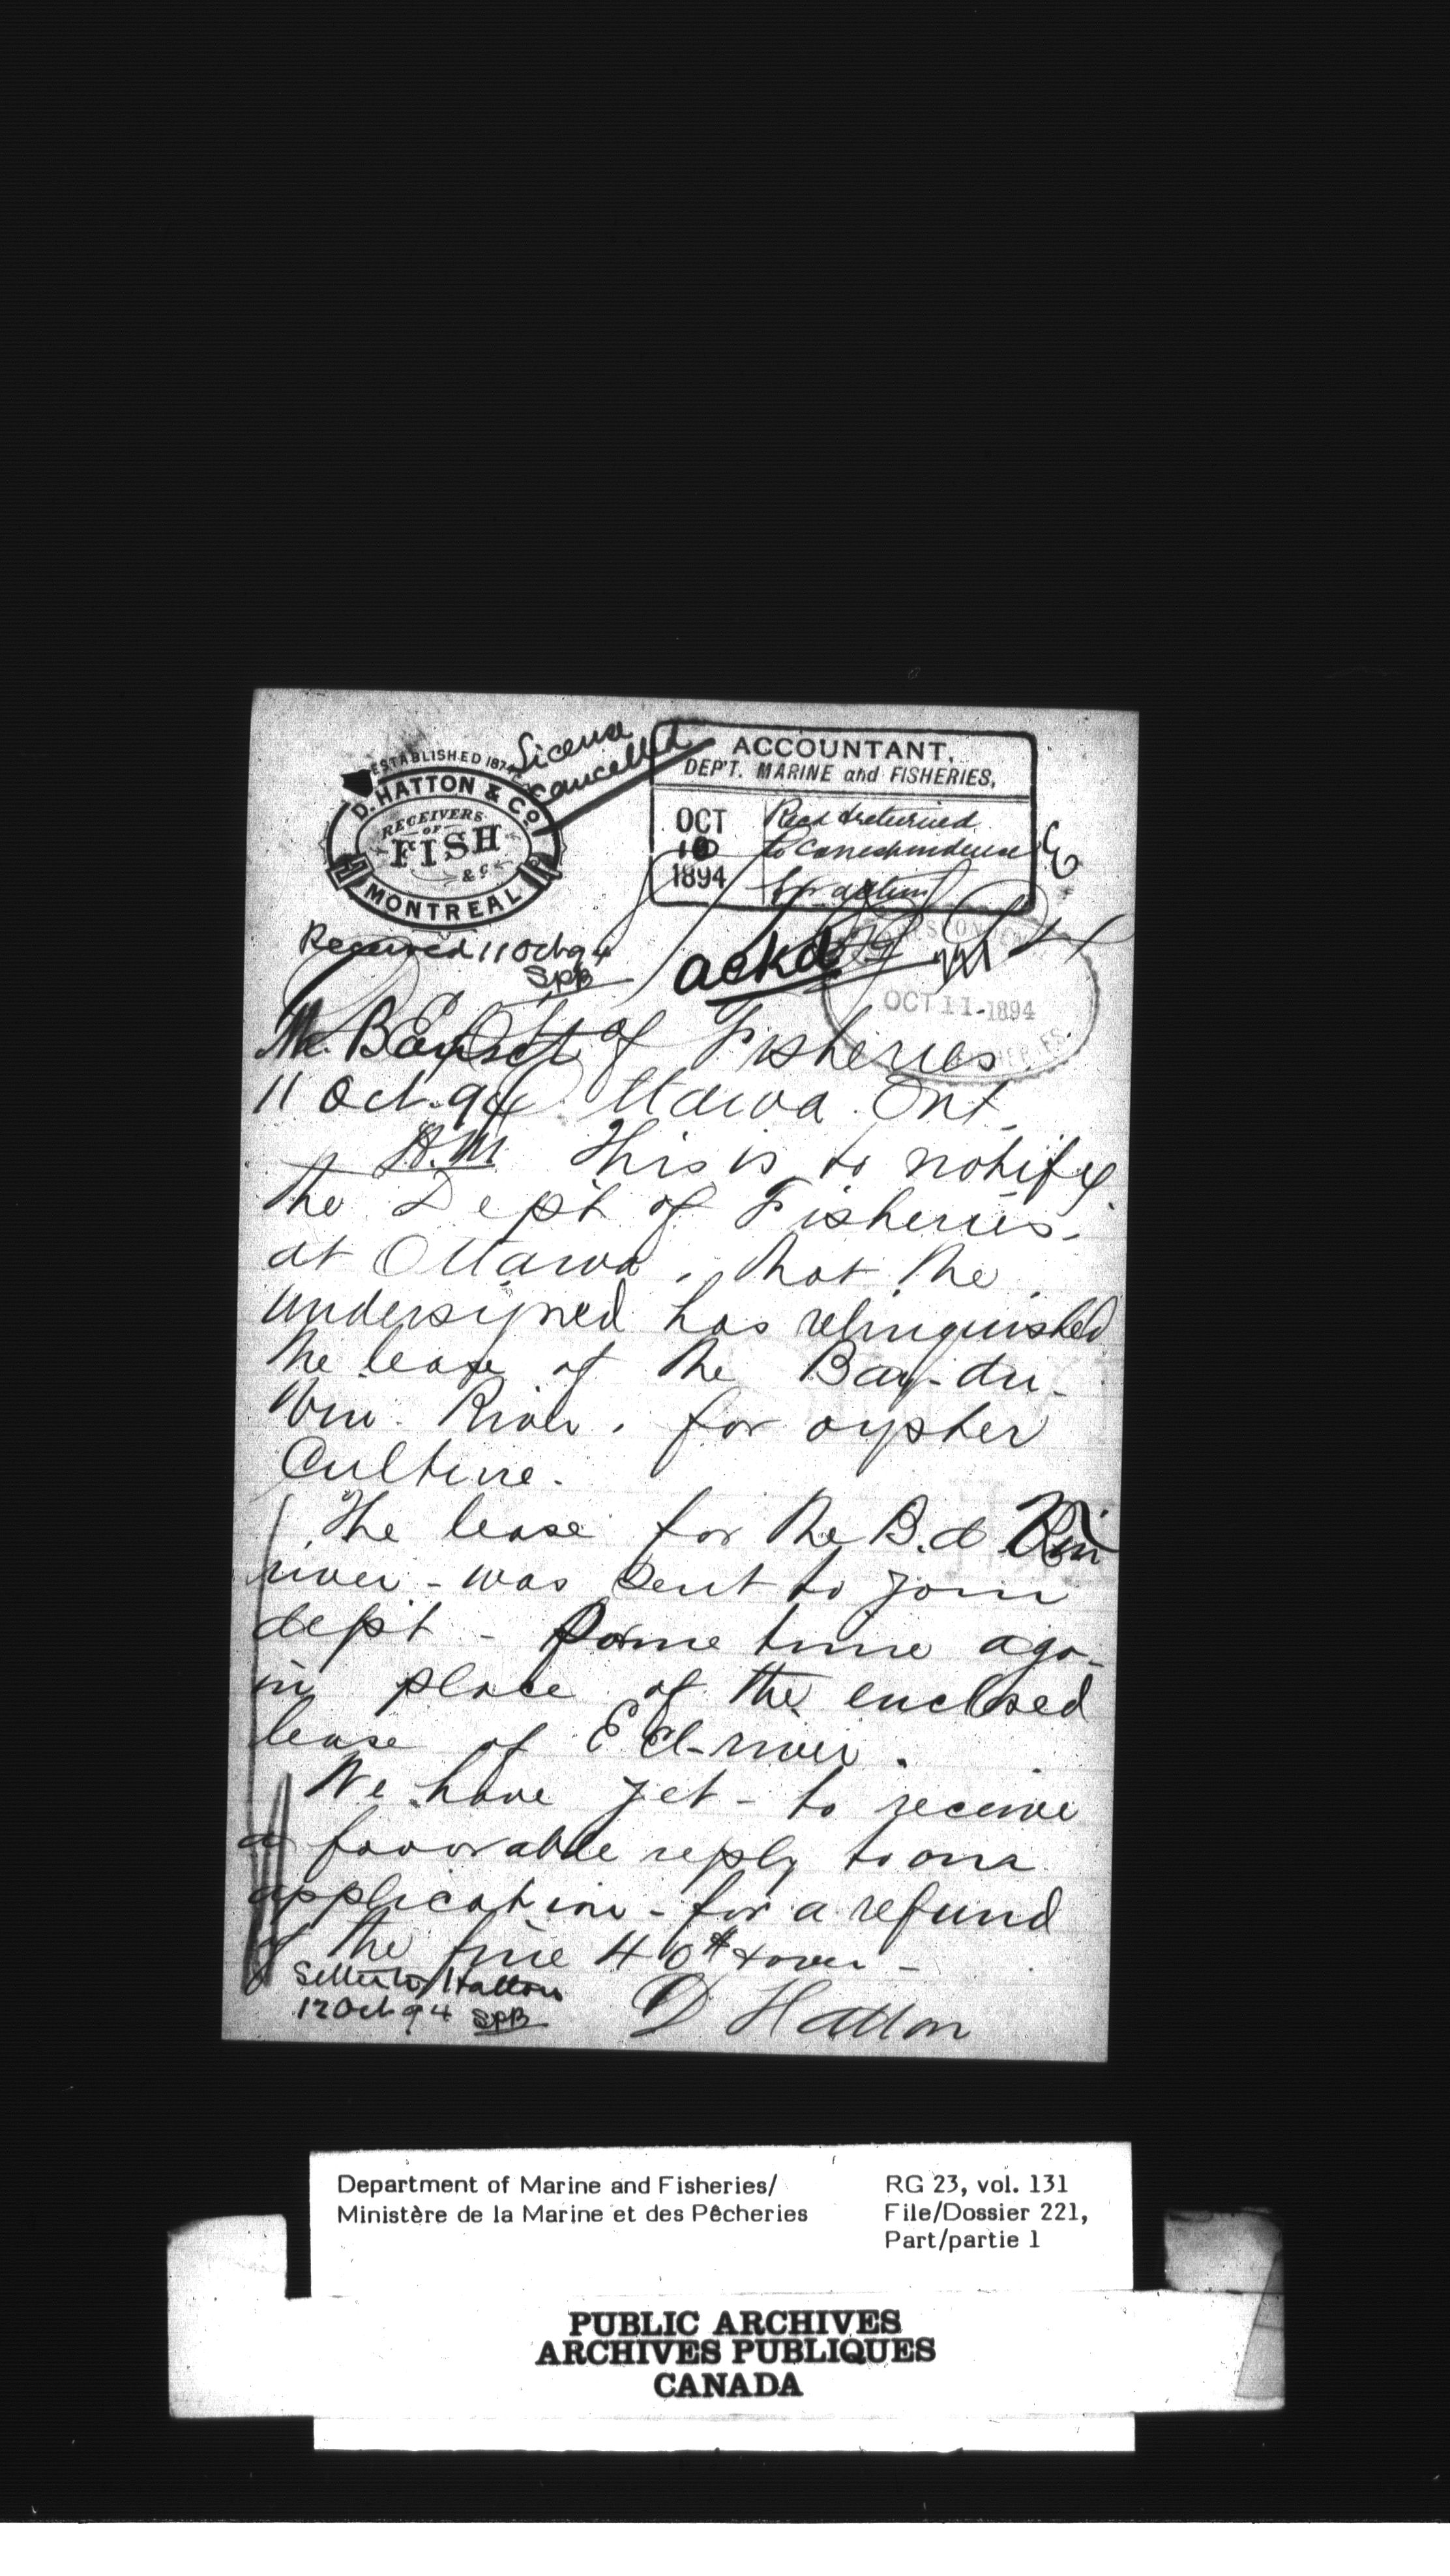 ESTABLISHED 1874
D. HATTON & CO.
RECEIVERS
OF
FISH
& C
MONTREAL
License
cancelled
ACCOUNTANT,
DEP'T. MARINE and FISHERIES,
OCT
10
1894
Recd & returned
to Correspondence
for action
Received 11 Oct 94
SPB
ackd
OCT 11 1894
Mr. Bauset
Dept of Fisheries
11 Oct. 94
Ottawa Ont.
This is to notify
the Dept of Fisheries,
at Ottawa, that the
undersigned has relinquished
the lease of the Bay-du-
Vin River, for oyster
Culture.
The lease for the B. d. Vin
river - was sent to your
dept - some time ago -
in place of the enclosed
lease of Eel-river.
We have yet - to receive
a favorable reply to our
application - for a refund
of the fine 40$ & over -
D Hatton
Letter to Hatton
12 Oct 94 SPB
Department of Marine and Fisheries/
Ministère de la Marine et des Pêcheries
RG 23, vol. 131
File/Dossier 221,
Part/partie 1
PUBLIC ARCHIVES
ARCHIVES PUBLIQUES
CANADA